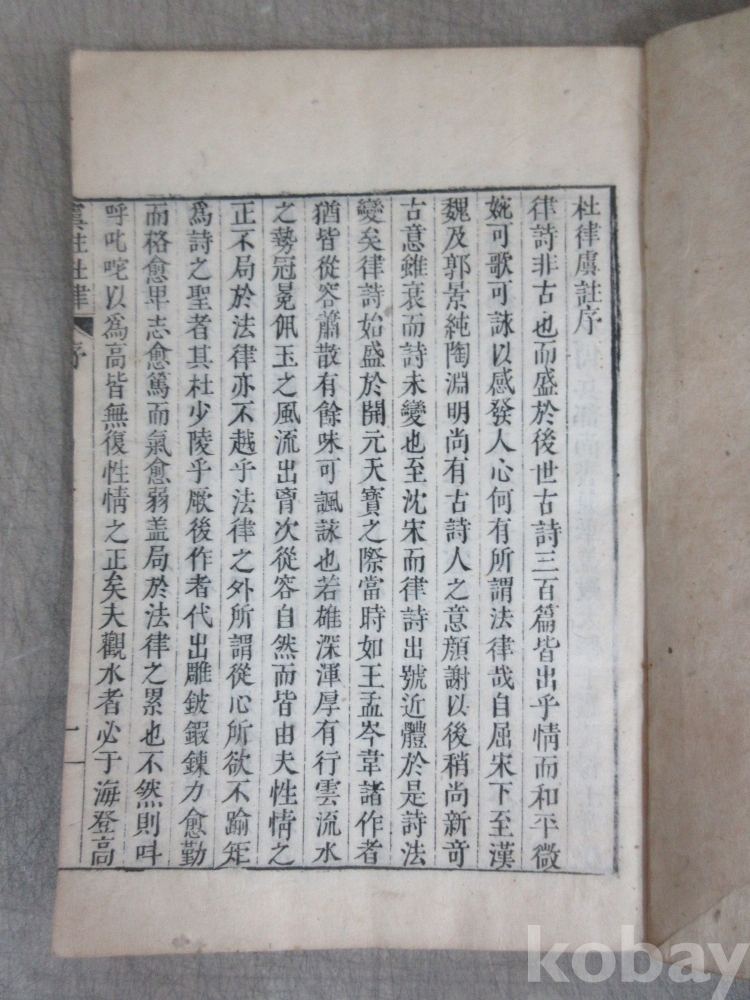 杜律虞註序
律詩非古也而盛於後世古詩三百篇皆出乎情而和平微
婉可歌可詠以感發人心何有所謂法律哉自屈宋下至漢
魏及郭景純陶淵明尚有古詩人之意顏謝以後稍尚新奇
古意雖衰而詩未變也至沈宋而律詩出號近體於是詩法
變矣律詩始盛於開元天寶之際當時如王孟岑韋諸作者
猶皆從容蕭散有餘味可諷詠也若雄深渾厚有行雲流水
之勢冠冕佩玉之風流出胷次從容自然而皆由夫性情之
正不局於法律亦不越乎法律之外所謂從心所欲不踰矩
爲詩之聖者其杜少陵乎厥後作者代出雕鈹鍜鍊力愈勤
而格愈卑志愈篤而氣愈弱盖局於法律之累也不然則呌
呼叱咤以爲高皆無復性情之正矣夫觀水者必于海登高
虞註杜律 序 一
kobay